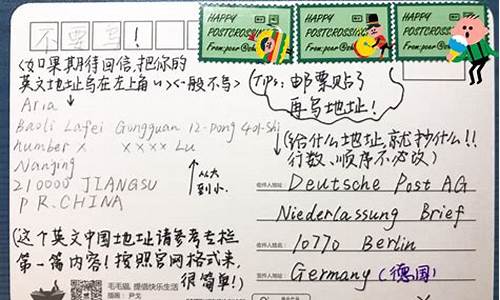 不要写!
HAPPY POSTCROSSING
HAPPY POSTCROSSING
HAPPY POSTCROSSING
(如果期待回信,把你的
英文地址写在左上角
一般不写)
(Tips: 邮票贴了
再写地址!
Aria
Baoli Lafei Gongguan 12-Dong 401-Shi
number x xxxx Lu
Nanjing
210000 JIANGSU
P R. CHINA
从大
到小
(给什么地址,就抄什么!!
行数、顺序不必改)
收件人地址:
Deutsche Post AG
Niederlassung Brief
10770 Berlin
Germany (德国)
(这个英文中国地址请参考专栏
第一篇内容!按照官网格式来,
很简单!)
毛毛猫,提倡快乐生活
插画:尹戈